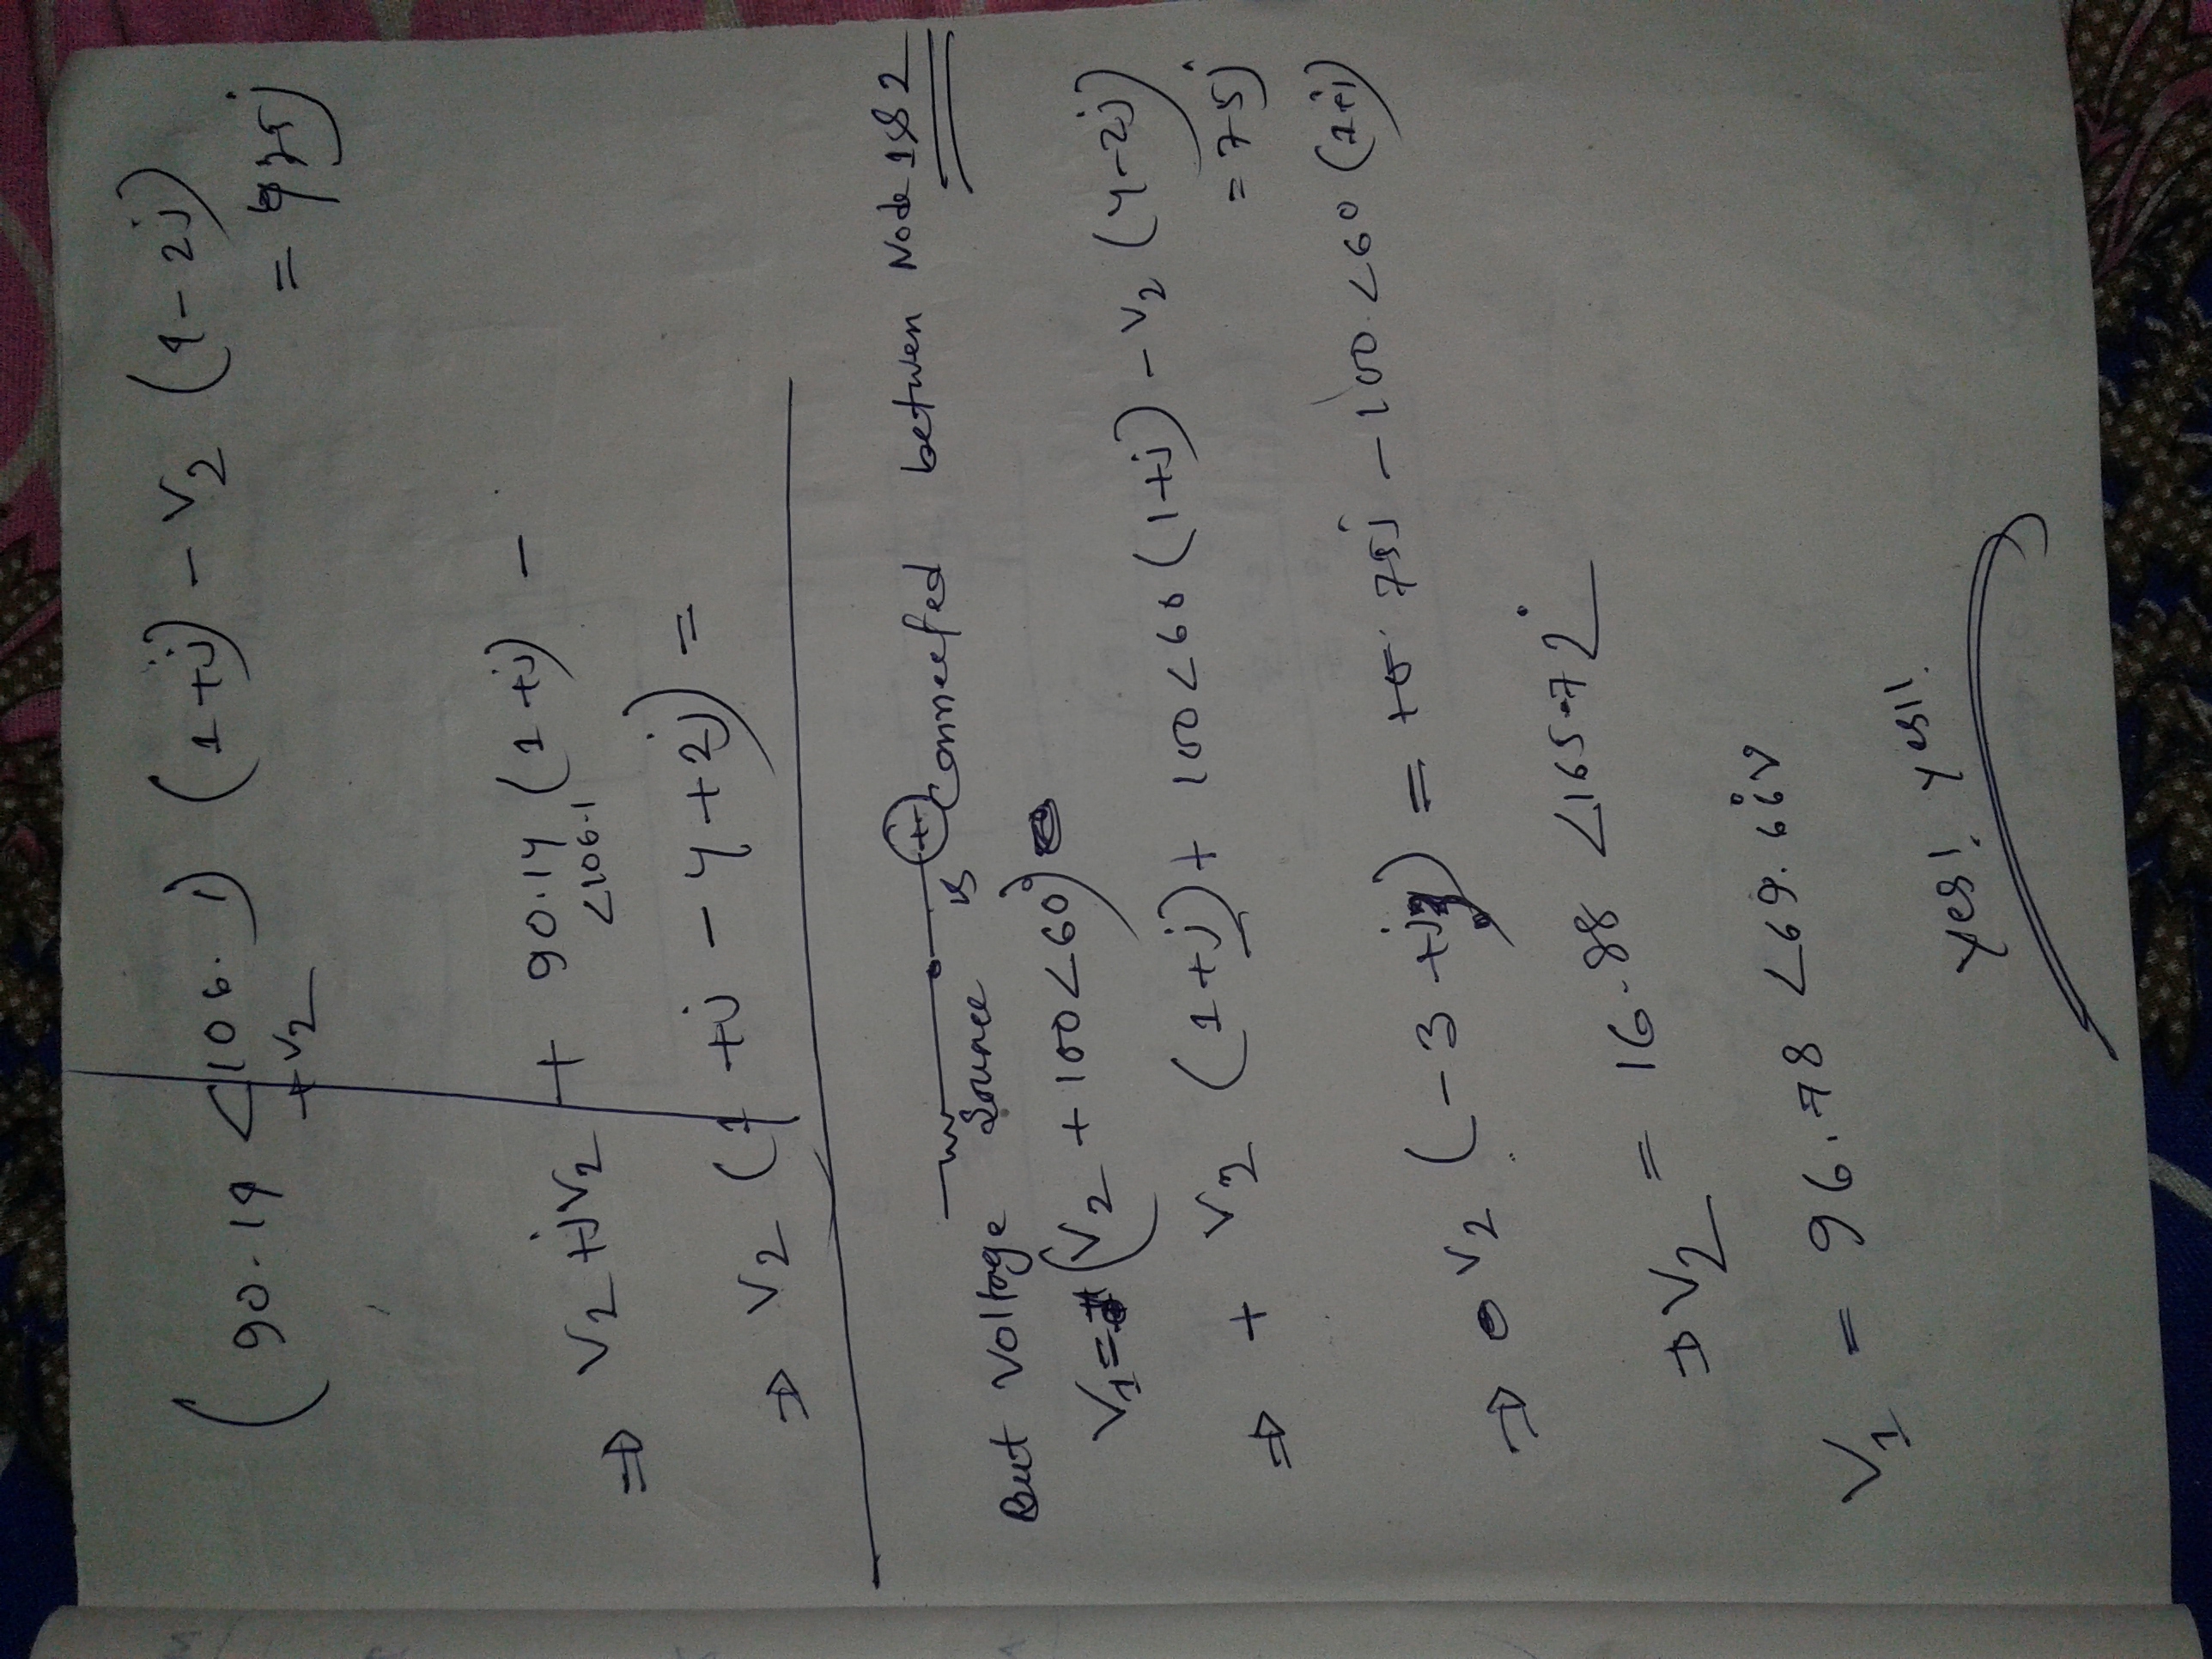 (90.14 <106.1) (1+j) - V₂ (4-2j)
+V₂
= 475j
⇒ V₂ +jV₂ + 90.14 (1+j) -
<106.1
⇒ V₂ (1 +j - 4+2j) =
But Voltage Source is Connected between Node 1&2
V₁= (V₂ + 100<60°)
⇒ + V₂ (1+j) + 100<60 (1+j) - V₂ (4-2j)
= 75j
⇒ V₂ (-3 +j) = 75j - 100 <60 (1+j)
⇒ V₂ = 16.88 <165.72°
V₁ = 96.78 <69.66°V
Yes! Yes!!